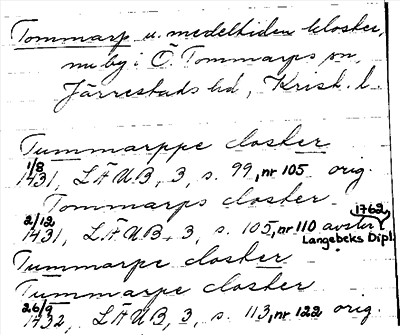 Tommarp u. medeltiden kloster,
nu by i Ö. Tommarps sn,
Järrestads hd, Krist. l.
Tummarppe closter
1/8
1431, LÄUB, 3, s. 99, nr 105 orig.
Tommarps closter
1762
2/12
1431, LÄUB, 3, s. 105, nr 110 avskr
Langebeks Dipl.
Tummarpe closter
Tummarpe closter
26/9
1432, LÄUB, 3, s. 113, nr 122 orig.